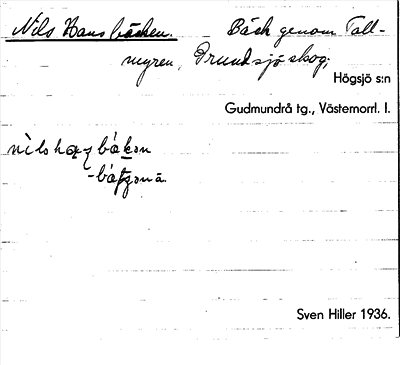 Nils Hansbäcken. Bäck genom Tall-
myren, Brundsjö skog;
Högsjö s:n
Gudmundrå tg., Västernorrl. l.
Sven Hiller 1936.